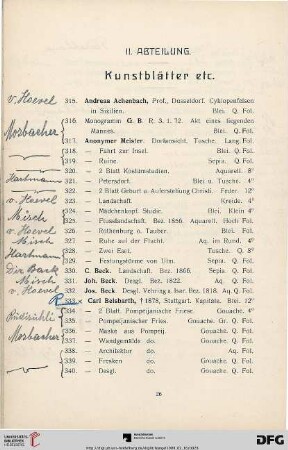 II. ABTEILUNG.
Kunstblätter etc.
v. Hoevel
315. Andreas Achenbach, Prof., Düsseldorf. Cyklopenfelsen
in Sicilien. Blei. Q. Fol.
Mosbacher
316. Monogramm G. B. R. 3. 1. 72. Akt eines liegenden
Mannes. Blei. Q. Fol.
317. Anonymer Meister. Tusche. Lang Fol.
318. — Fahrt zur Insel. Blei. Q. Fol.
319. — Ruine. Sepia. Q. Fol.
320. — 2 Blatt Kostümstudien. Aquarell. 8°
Hartmann
321. — Petersdorf. Blei u. Tusche. 4°
322. — 2 Blatt Geburt u. Auferstehung Christi. Feder. 12°
v. Hoevel
323. — Landschaft. Kreide. 4°
Misch
324. — Mädchenkopf. Studie. Blei. Klein 4°
325. — Flusslandschaft. Bez. 1856. Aquarell. Hoch Fol.
v. Hoevel
326. — Rothenburg o. Tauber. Blei. Q. Fol.
Misch
327. — Ruhe auf der Flucht. Aq. im Rund. 4°
Hartmann
328. — Zwei Esel. Tusche. Q. 8°
329. — Festungstürme von Ulm. Sepia. Q. Fol.
330. C. Beck. Landschaft. Bez. 1866. Sepia. Q. Fol.
Misch
331. Joh. Beck. Desgl. Bez. 1822. Aq. Q. Fol.
v. Hoevel
332. Jos. Beck. Desgl. Bez. 1818. Aq. Q. Fol.
333. Carl Beisbarth, † 1878, Stuttgart. Kapitäle. Blei. 12°
334. — 2 Blatt. Pompejanische Friese. Gouache. 4°
335. — Pompejanischer Fries. Gouache. Gr. Q. Fol.
Mosbacher
336. — Maske aus Pompeji. Gouache. Q. Fol.
337. — Wandgemälde do. Gouache. Q. Fol.
338. — Architektur do. Aq. Fol.
339. — Fresken do. Gouache. Fol.
340. — Desgl. do. Gouache. Fol.
26
DFG